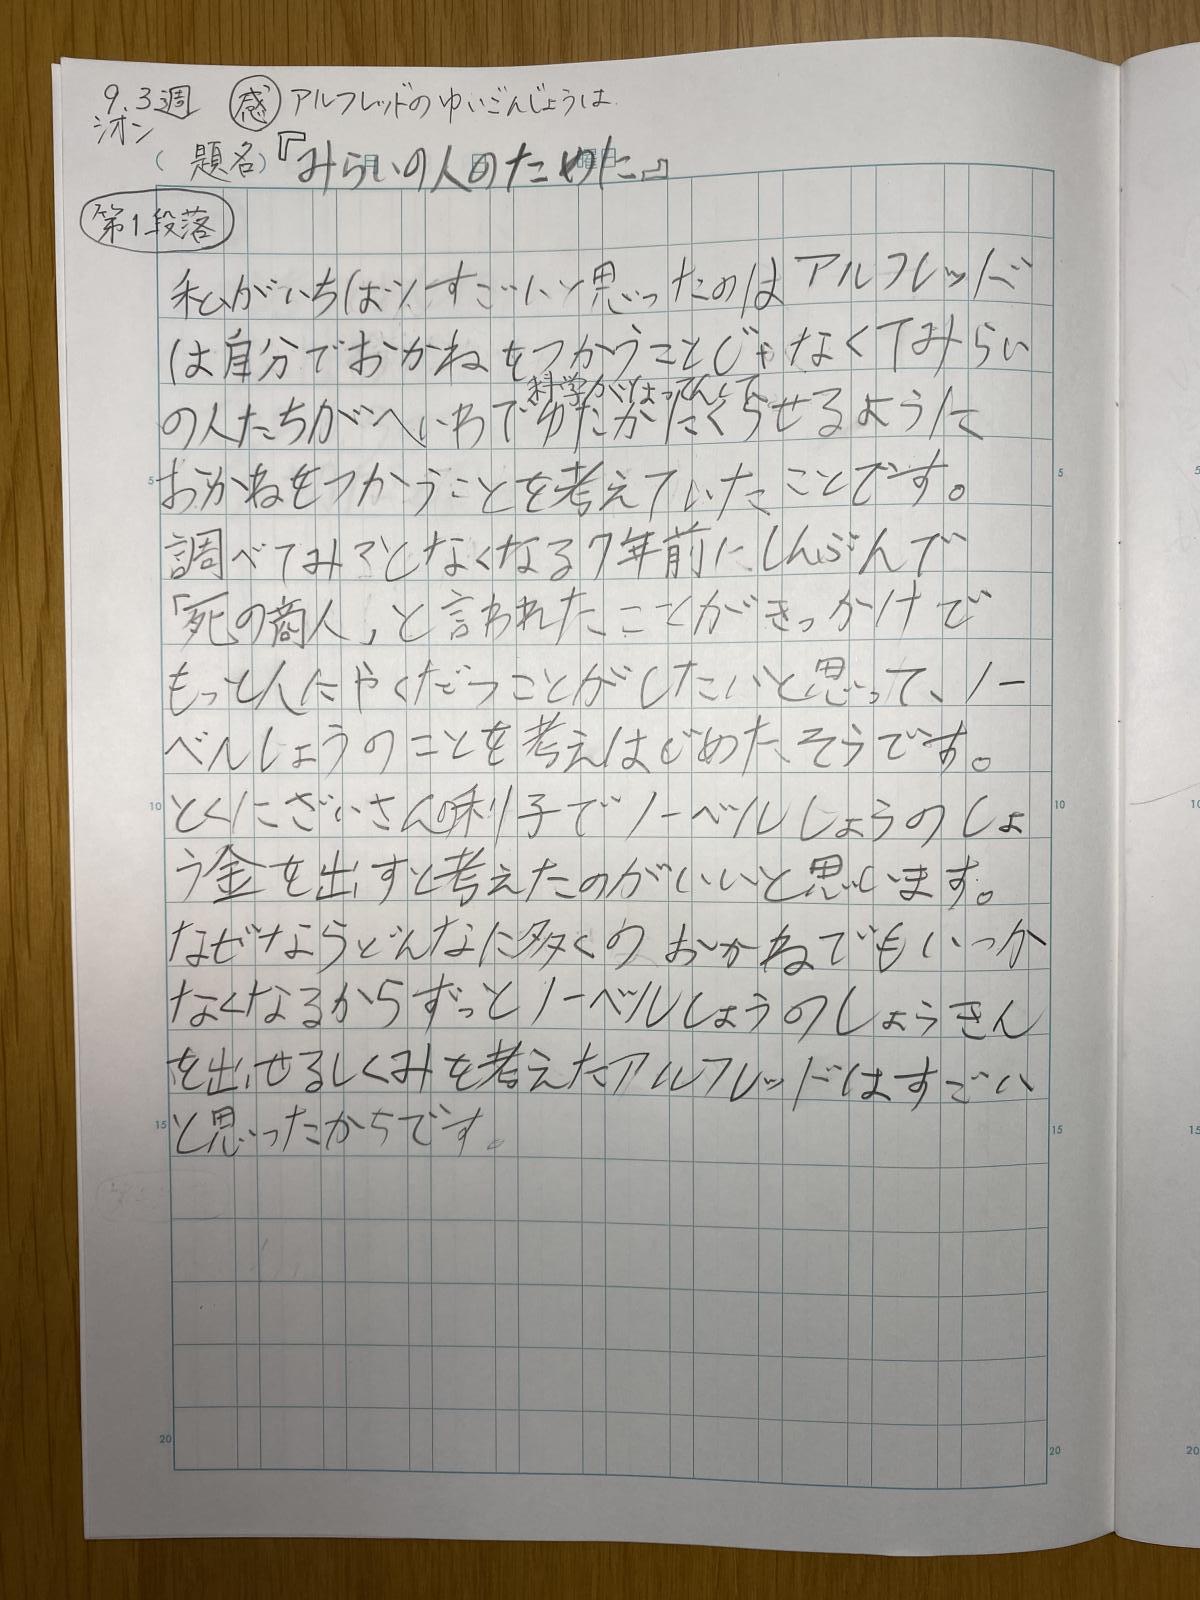 9.3週 感 アルフレッドのゆいごんじょうは
シオン
(題名)『みらいの人のために』
第1段落
私がいちばんすごいと思ったのはアルフレッド
は自分でおかねをつかうことじゃなくてみらい
科学がはってんして
の人たちがへいわでゆたかにくらせるように
おかねをつかうことを考えていたことです。
調べてみるとなくなる7年前にしんぶんで
「死の商人」と言われたことがきっかけで
もっと人にやくだつことがしたいと思って、ノー
ベルしょうのことを考えはじめたそうです。
とくにざいさんの利子でノーベルしょうのしょ
う金を出すと考えたのがいいと思います。
なぜならどんなに多くのおかねでもいつか
なくなるからずっとノーベルしょうのしょうきん
を出せるしくみを考えたアルフレッドはすごい
と思ったからです。
5
10
15
20
5
10
15
20